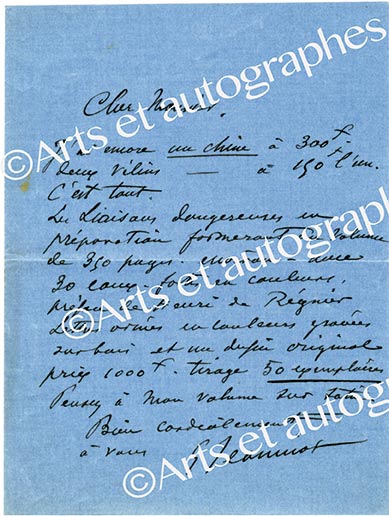 Cher Monsieur,
J'ai encore un chine à 300f.
deux vélins — à 150 l'un.
C'est tout.
Les Liaisons dangereuses en
préparation formeront un volume
de 350 pages. environ avec
30 eaux-fortes en couleurs,
préface de Henri de Régnier
Lettres ornées en couleurs gravées
sur bois et un dessin original
prix 1000f. tirage 50 exemplaires
Pensez à mon volume sur
Bien cordialement
à vous
G Jeanniot
©Arts et autographes
©Arts et autographes
©Arts et autographes
©Arts et autographes